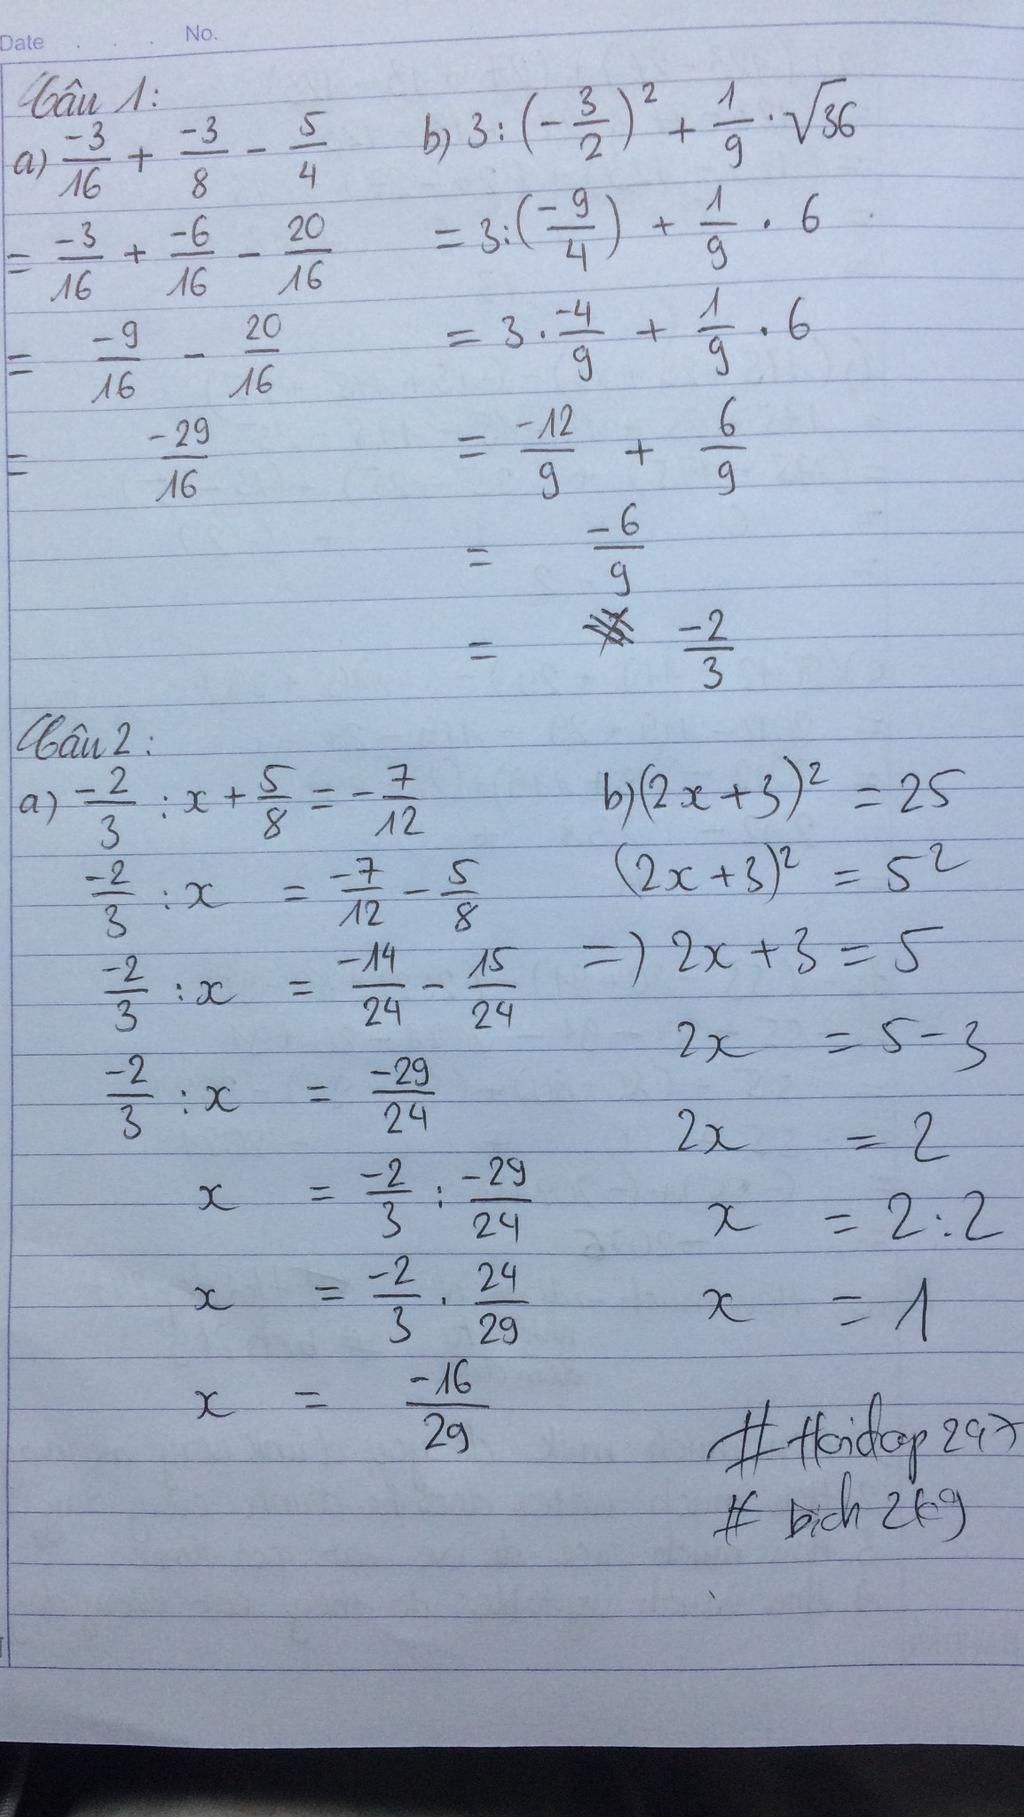 Date . . . No.
Câu 1:
a) -3/16 + -3/8 - 5/4
= -3/16 + -6/16 - 20/16
= -9/16 - 20/16
= -29/16
b) 3 : (-3/2)² + 1/9 . √36
= 3 : (-9/4) + 1/9 . 6
= 3 . -4/9 + 1/9 . 6
= -12/9 + 6/9
= -6/9
= -2/3
Câu 2:
a) -2/3 : x + 5/8 = -7/12
-2/3 : x = -7/12 - 5/8
-2/3 : x = -14/24 - 15/24
-2/3 : x = -29/24
x = -2/3 : -29/24
x = -2/3 . 24/29
x = -16/29
b) (2x + 3)² = 25
(2x + 3)² = 5²
=) 2x + 3 = 5
2x = 5 - 3
2x = 2
x = 2 : 2
x = 1
# Hoidap 247
# bich 2k9